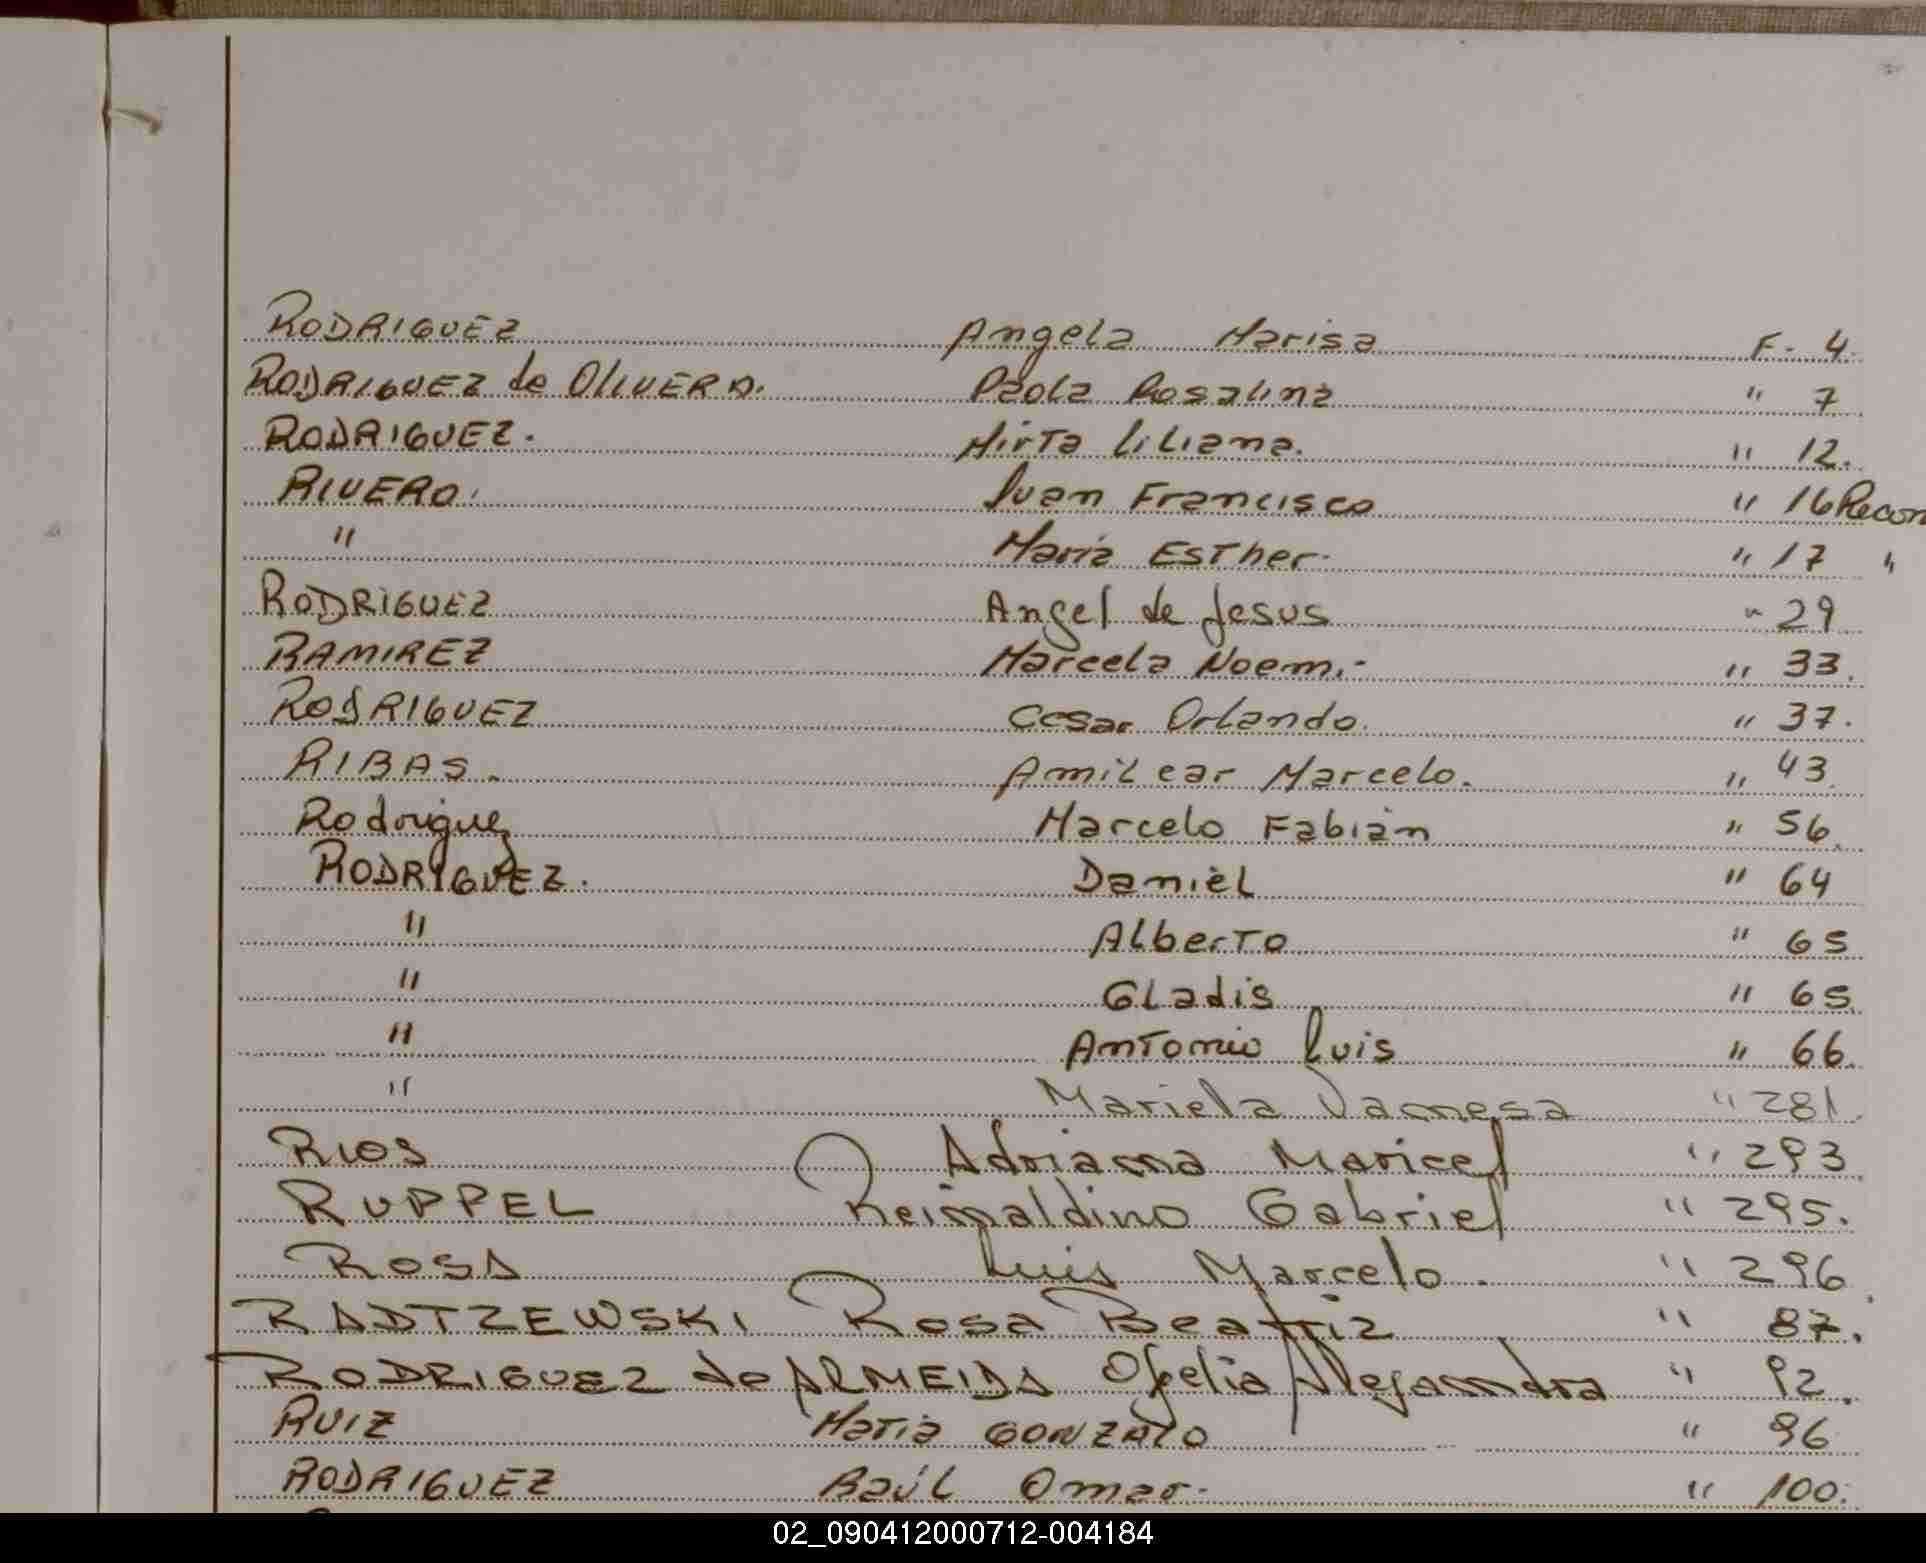 RODRIGUEZ Angela Marisa F. 4.
RODRIGUEZ de OLIVERA. Paola Rosalina " 7
RODRIGUEZ. Mirta Liliana. " 12.
RIVERO. Juan Francisco " 16 Recon
" Maria Esther. " 17 "
RODRIGUEZ Angel de Jesus " 29
RAMIREZ Marcela Noemi.- " 33.
RODRIGUEZ Cesar Orlando. " 37.
RIBAS. Amilcar Marcelo. " 43.
Rodriguez Marcelo Fabián " 56.
RODRIGUEZ. Daniel " 64
" Alberto " 65
" Gladis " 65.
" Antonio Luis " 66.
" Mariela Vamesa " 281.
RIOS Adriana Maricel " 293
RUPPEL Reinaldino Gabriel " 295.
ROSA Luis Marcelo. " 296
RADTZEWSKI Rosa Beatriz " 87.
RODRIGUEZ de ALMEIDA Ofelia Alejamdra " 92.
RUIZ GONZALO " 96
RODRIGUEZ Raúl Omar. " 100.
02_090412000712-004184